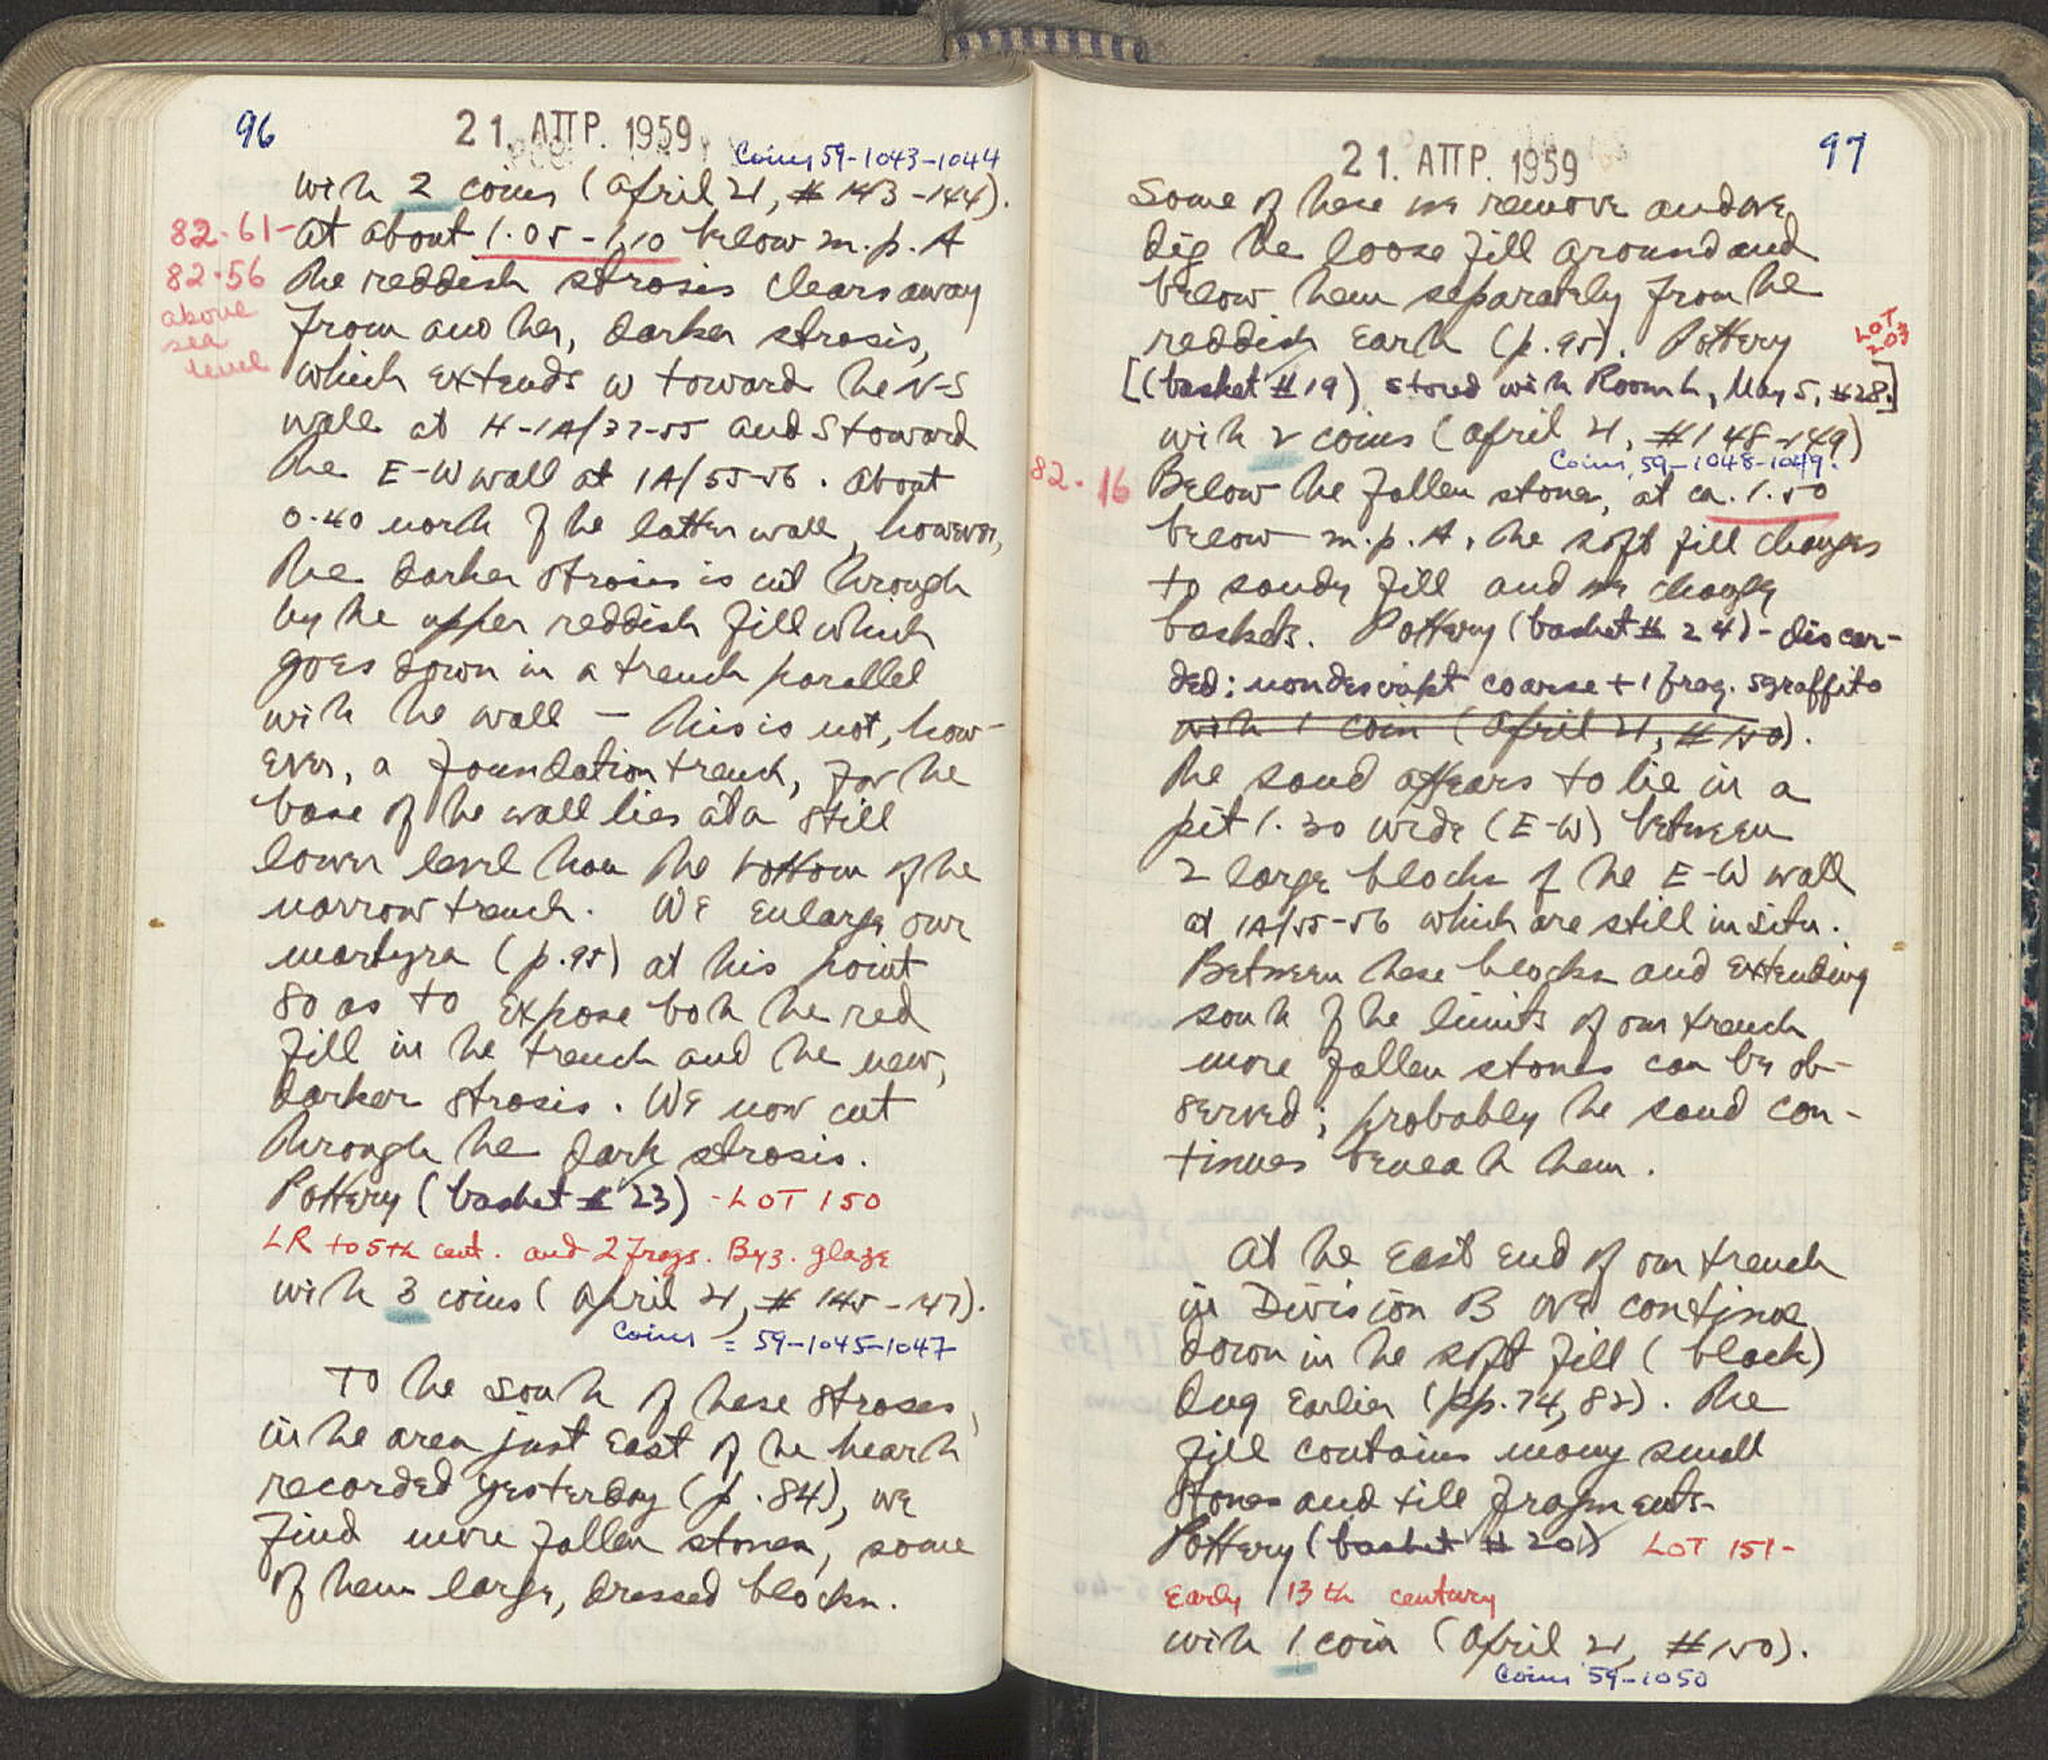 96
21. ΑΠΡ. 1959
Coins 59-1043-1044
with 2 coins (April 21, # 143-144).
82.61- At about 1.05-1.10 below m.p. A
82.56 the reddish strosis clears away
above
sea
level
from another, darker strosis,
which extends W toward the N-S
wall at H-1A/37-55 and S toward
the E-W wall at 1A/55-56. About
0.40 north of the latter wall, however,
the darker strosis is cut through
by the upper reddish fill which
goes down in a trench parallel
with the wall — this is not, how-
ever, a foundation trench, for the
base of the wall lies at a still
lower level than the bottom of the
narrow trench. We enlarge our
martyra (p.95) at this point
so as to expose both the red
fill in the trench and the new,
darker strosis. We now cut
through the dark strosis.
Pottery (basket # 23) - LOT 150
LR to 5th cent. and 2 frags. Byz. glaze
with 3 coins (April 21, # 145-147).
Coins = 59-1045-1047
To the south of these stroses,
in the area just east of the hearth
recorded yesterday (p.84), we
find more fallen stones, some
of them large, dressed blocks.
97
21. ΑΠΡ. 1959
Some of these we remove and we
dig the loose fill around and
below them separately from the
reddish earth (p.95). Pottery
LOT
203
[(basket # 19) stored with Room h, May 5, #28.]
with 2 coins (April 21, #148-149)
Coins 59-1048-1049.
82.16 Below the fallen stones, at ca. 1.50
below m.p. A, the soft fill changes
to sandy fill and we change
baskets. Pottery (basket # 24) - discar-
ded: nondescript coarse + 1 frag. sgraffito
with 1 coin (April 21, #150).
The sand appears to lie in a
pit 1.30 wide (E-W) between
2 large blocks of the E-W wall
at 1A/55-56 which are still in situ.
Between these blocks and extending
south of the limits of our trench
more fallen stones can be ob-
served; probably the sand con-
tinues beneath them.
At the east end of our trench
in Division B we continue
down in the soft fill (black)
dug earlier (pp.74, 82). The
fill contains many small
stones and tile fragments.
Pottery (basket # 20) LOT 151-
Early 13th century
with 1 coin (April 21, #150).
Coins 59-1050